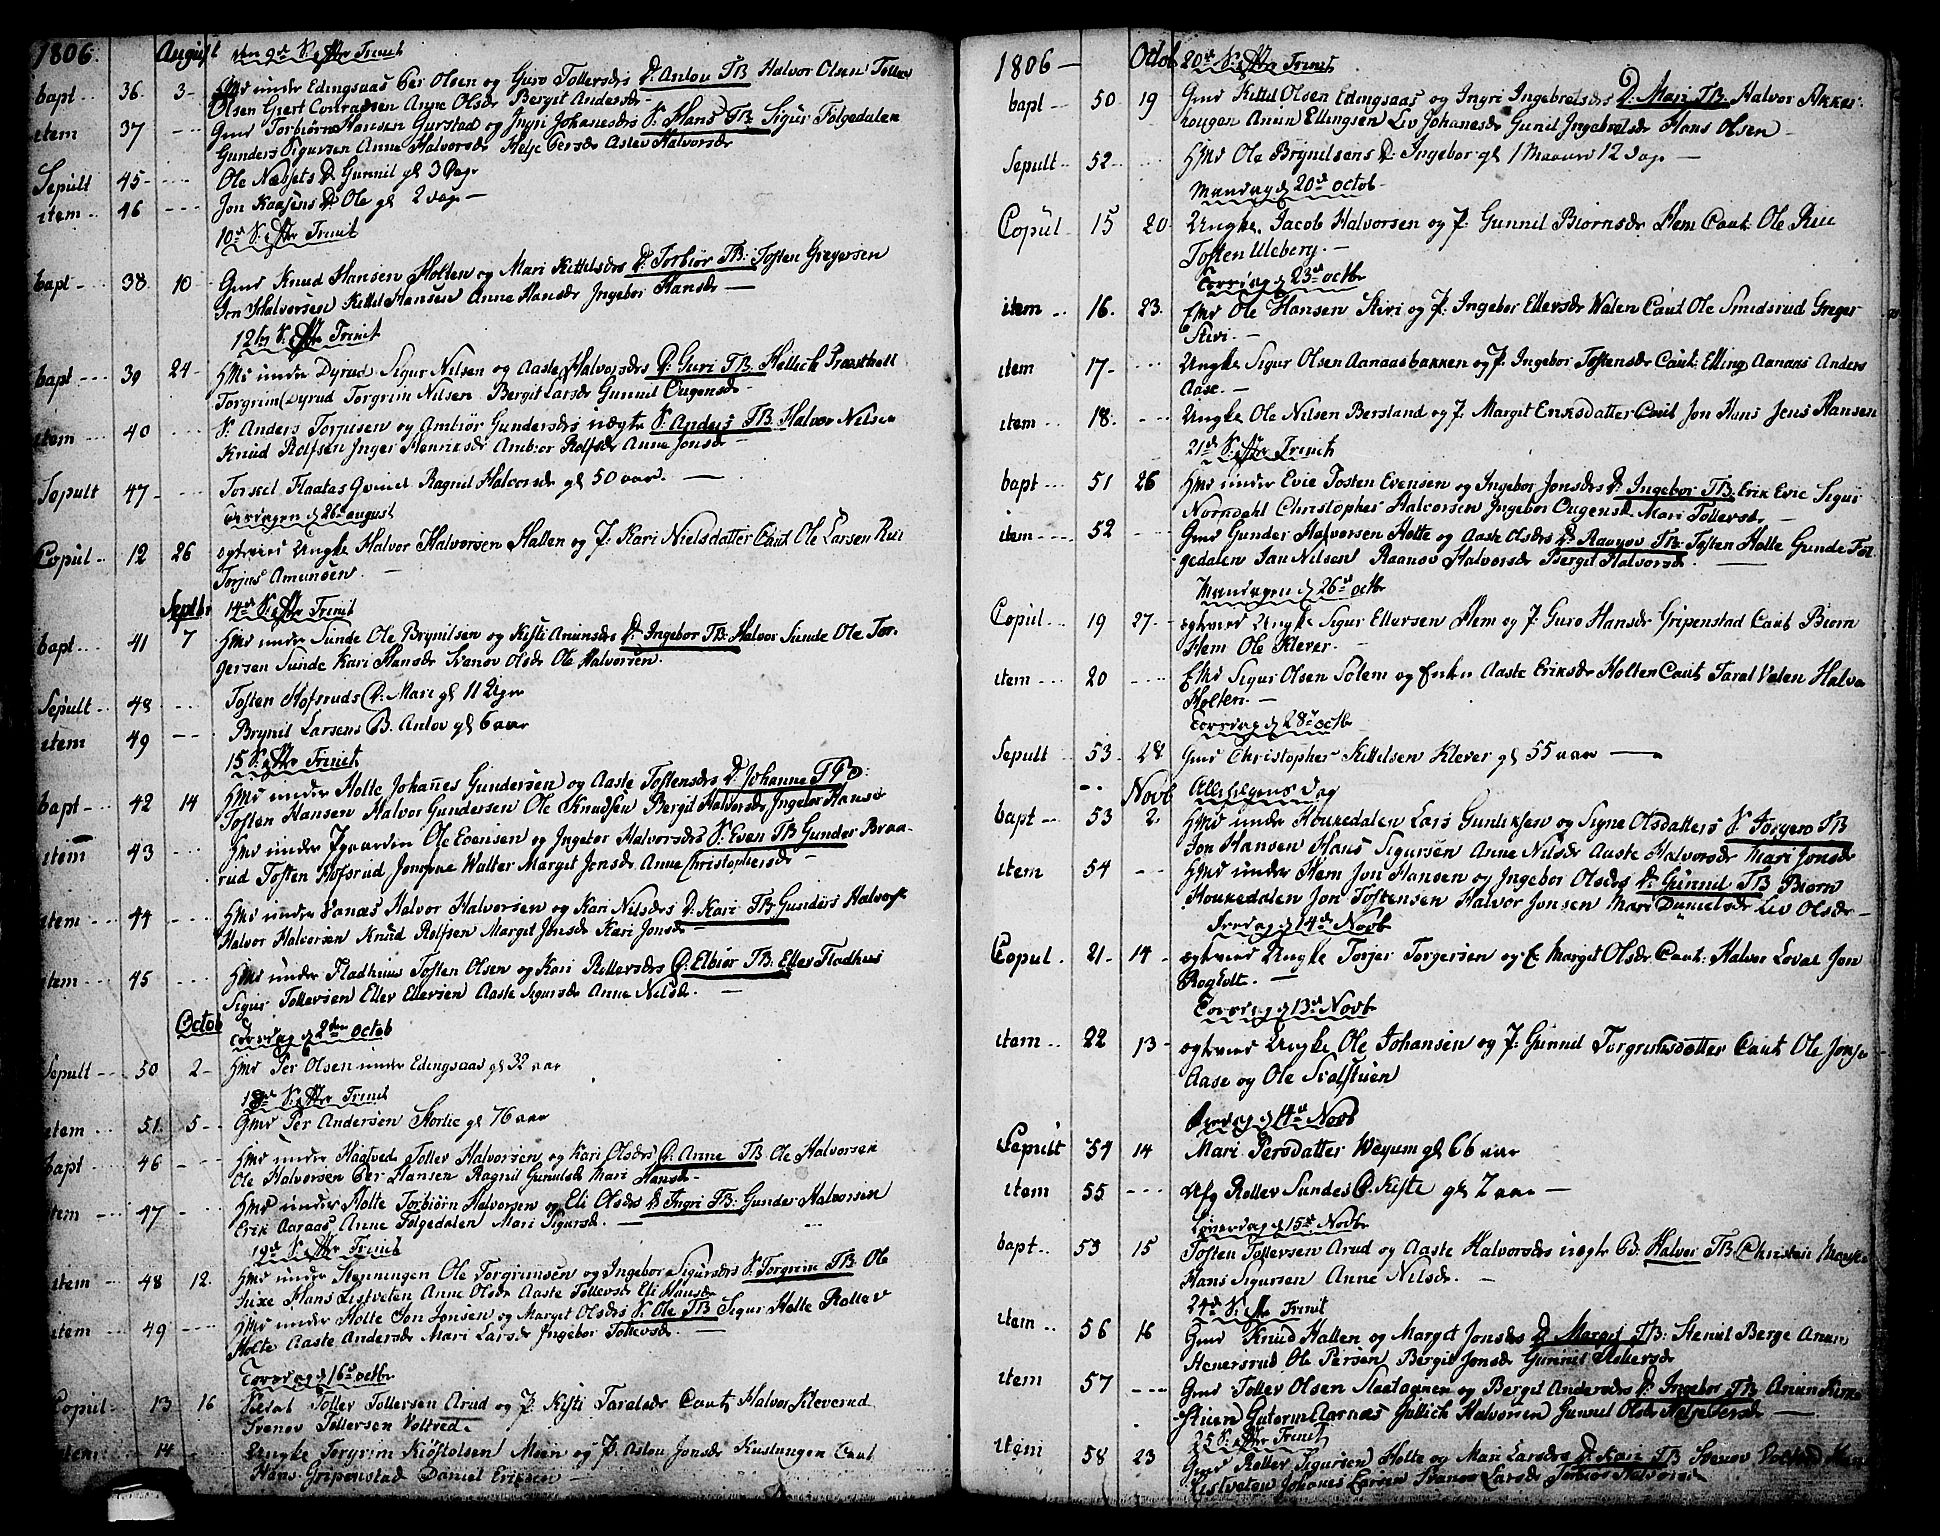 1806. August den 9de S. efter Trinit
bapt 36. 3 Hmd under Edingsaas Per Olsen og Guro Tollersdr D. Anlou TB Halvor Olsen Toller
Olsen Gjert Conradsen Anne Olsdr Bergit Andersdr
item 37 Gmd Torbiørn Hansen Gurstad og Ingri Johanesdrs S. Hans TB Sigur Følgedalen
Gunder Sigursen Anne Halvorsdr Helje Persdr Aslev Halvorsdr
Sepult 45 Ole Næbsets D. Gunnil gl 3 Dage
item 46 Jon Kaasens Ole gl 2 dage
10de S. efter Trinit
bapt 38 10 Gmd Knud Hansen Holten og Mari Kittelsdrs D. Torbiør TB. Tosten Gregersen
Jon Halvorsen Kittel Hansen Anne Hansdr Ingebor Hansdr
12te S. efter Trinit
bapt 39 24 Hmd under Dyrud Sigur Nilsen og Aaste Halvorsdrs D. Guri TB. Hellich Præstholt
Torgrim Dyrud Torgrim Nilsen Bergit Larsdr Gunnil Ougensdr
item 40 S. Anders Torjusen og Ambiør Gundersdrs uægte S. Anders TB. Halvor Nilsen
Knud Rolfsen Inger Ambiør Rolfsdr Anne Jonsdr
Sepult 47 Torkel Flaatas Qvinde Ragnil Halvorsdr gl 50 aar.
Torsdagen d 26 august
Copul 12 26 ogtvied Ungke Halvor Halvorsen Hallen og P. Kari Nielsdatter Caut Ole Larsen Rui
Torjus Amunsen
Septbr 14de S. efter Trinit
bapt. 41 7 Hmd under Sunde Ole Brynilsen og Kisti Anunsdrs D. Ingebor TB. Halvor Sunde Ole Tor-
gersen Sunde Kari Hansdr Svanov Olsdr Ole Halvorsen.
Sepult 48 Tosten Hofsruds D. Mari gl 11 Uger
item 49 Brynil Larsens B. Anlov gl 6 aar
15 S. efter Trinit
bapt 42 14 Hmd under Holte Johannes Gundersen og Aaste Tostensdrs D. Johanne
Tosten Hansen Halvor Gundersen Ole Knudsen Bergit Halvorsdr Ingebor Hansdr
item 43 Hmd under Ole Evensen og Ingebor Halvorsdrs S. Even TB Gunder Braa-
rud Tosten Hofsrud Walter Margit Jonsdr Anne Christophersdr
item 44 Hmd under Halvor Halvorsen og Kari Nilsdrs D. Kari TB Gunders Halvors
Halvor Halvorsen Knud Rolfsen Margit Jonsdr Kari Jonsdr
item 45 Hmd under Fladhuus Tosten Olsen og Kari Rollersdrs D. Elbiør TB. Eller Fladhuus
Sigur Tollersen Eller Ellersen Aaste Sigursdr Anne Nilsdr
Octob Torsdag d 2den Octob
Sepult 50 2 Hmd Per Olsen under Edingsaas gl 32 aar
18de S. efter Trinit
item 51. 5 Gmd Per Andersen Stortie gl 76 aar
bapt 46 Hmd under Haatvedt Toller Halvorsen og Kari Olsdrs D. Anne TB Ole Halvorsen
Ole Halvorsen Per Hansen Ragnil Mari Hansdr
item 47 Hmd under Holte Torbiørn Halvorsen og Eli Olsdrs D. Ingri TB: Gunder Halvorsen
Erik Aaraas Anne Følgedalen Mari Sigursdr.
19de S. efter Trinit
item 48 12. Hmd under Stenningen Ole Torgrimsen og Ingebor Sigursdrs S. Torgrim TB Ole
Juxe Hans Listveten Anne Olsdr Aaste Tollersdr Eli Hansdr
item 49 Hmd under Holte Jon Jonsen og Marget Olsdrs S. Ole TB Sigur Holte Roller
Holte Aaste Andersdr Mari Larsdr Ingebor Tollersdr.
Torsdag d 16 octbr
Copul 13 16 Toller Tollersen Aarud og P. Kisti Taralsdr Caut Halvor Kleverud
Svanov Tollersen Voltved
item 14 Ungke Torgrim Kiøstolsen Moen og P. Aslou Jonsdr Kustungen Caut
Hans Gripenstad Daniel Eriksen
1806 Octob 20de S. efter Trinit
bapt 50 19 Gmd Kittil Olsen Edingsaas og Ingri Ingebretsdrs D. Mari TB Halvor Akker-
hougen Anun Ellingsen Liv Johanesdr Gunil Ingebretsdr Hans Olsen
Sepult 52 Hmd Ole Brynilsens D. Ingebor gl 1 Maaned 12 dage
Mandag d 20de octob
Copul 15 20 Ungke Jacob Halvorsen og P. Gunnil Biørnsdr Hem Caut Ole Rui
Tosten Uleberg.
Torsdag d 23de octbr
item 16. 23. Emd Ole Hansen Stivi og P. Ingebor Ellersdr Walen Caut Ole Smedsrud Greger
Stivi.
item 17 Ungke Sigur Olsen Aanaasbakken og P. Ingebor Tostensdr Caut. Elling Aanaas Anders
Aase.
item 18. Ungke Ole Nilsen Bersland og P. Margit Eriksdatter Caut Jon Hans Jens Hansen
21de S. efter Trinit
bapt 51 26 Hmd under Evie Tosten Evensen og Ingebor Jonsdrs D. Ingebor TB: Erik Evie Sigur
Norndahl Christopher Halvorsen Ingebor Ougensdr Mari Tollersdr
item 52 Gmd Gunder Halvorsen Holte og Aaste Olsdrs D. Raanov TB: Tosten Holte Gunde Føl-
gedalen Jan Nilsen Raanov Halvorsdr Bergit Halvorsdr
Mandagen d 26de octbr
Copul 19 27 ogtvied Ungke Sigur Ellersen Hem og P. Guro Hansdr Gripenstad Caut Biørn
Hem Ole Klever.
item 20 Emd Sigur Olsen Solem og Enke Aaste Eriksdr Holten Caut Taral Valen Halvor
Holten.
Torsdag d 28de octbr
Sepult 53 28 Gmd Christopher Kittelsen Klever gl 55 aar
Novb Allehelgens dag
bapt 53 2. Hmd under Houkedalen Lars Gunliksen og Signe Olsdatters S. TB
Jon Hansen Hans Sigursen Anne Nilsdr Aaste Halvorsdr Mari Jonsdr
item 54 Hmd under Hem Jon Hansen og Ingebor Olsdrs D. Gunnil TB Biørn
Houkedalen Jon Tostensen Halvor Jonsen Mari Danielsdr Liv Olsdr
d 14de Novb
Copul. 21 14 ogtvied Ungke Torjer Torgersen og E. Margit Olsdr Caut: Halvor Loval Jon
Rogholt.
Torsdag d 13de Novb
item 22 13 ogtvied Ungke Ole Johansen og P. Gunnil Torgrimsdatter Caut Ole Jonsen
Aase og Ole Svalstuen
d 14de Novb
Sepult 54 14 Mari Persdatter Weyum gl 66 aar
item 55 Roller Sundes D. Kisti gl 7 aar
Løverdag d 15de Novb
bapt.. 53 15 Tosten Tollersen Arud og Aaste Halvorsdrs uægte B. Halvor TB Christen
Hans Sigursen Anne Nilsdr.
24de S. efter Trinit
item 56 16 Gmd Knud Hallen og Marget Jonsdrs D. Margit TB: Stenul Berge Anun
Stenersrud Ole Persen Bergit Jonsdr Gunnil Rollersdr
item 57 Gmd Toller Olsen og Bergit Andersdrs D. Ingebor TB Anun
Stuen Gutorm Aarnæs Gullich Halvorsen Gunnil Olsdr Helje Persdr
25 S. efter Trinit
item 58 23 Gmd Roller Sigursen Holte og Mari Larsdrs D. Kari TB
Listveten Johanes Larsen Svanov Larsdr Torbiør Halvorsdr